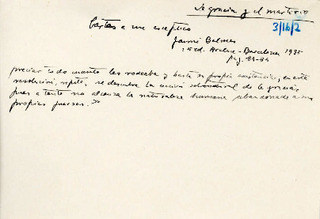 La gracia y el misterio
3/16/2
Cartas a un escéptico
Jaime Balmes
ed. Barcelona 1935
pág. 11-84
preciar todo cuanto les rodeaba y hasta su propia existencia, en esta
resolución, repito, se descubre la acción sobrenatural de la gracia,
pues a tanto no alcanza la naturaleza humana abandonada a sus
propias fuerzas.»